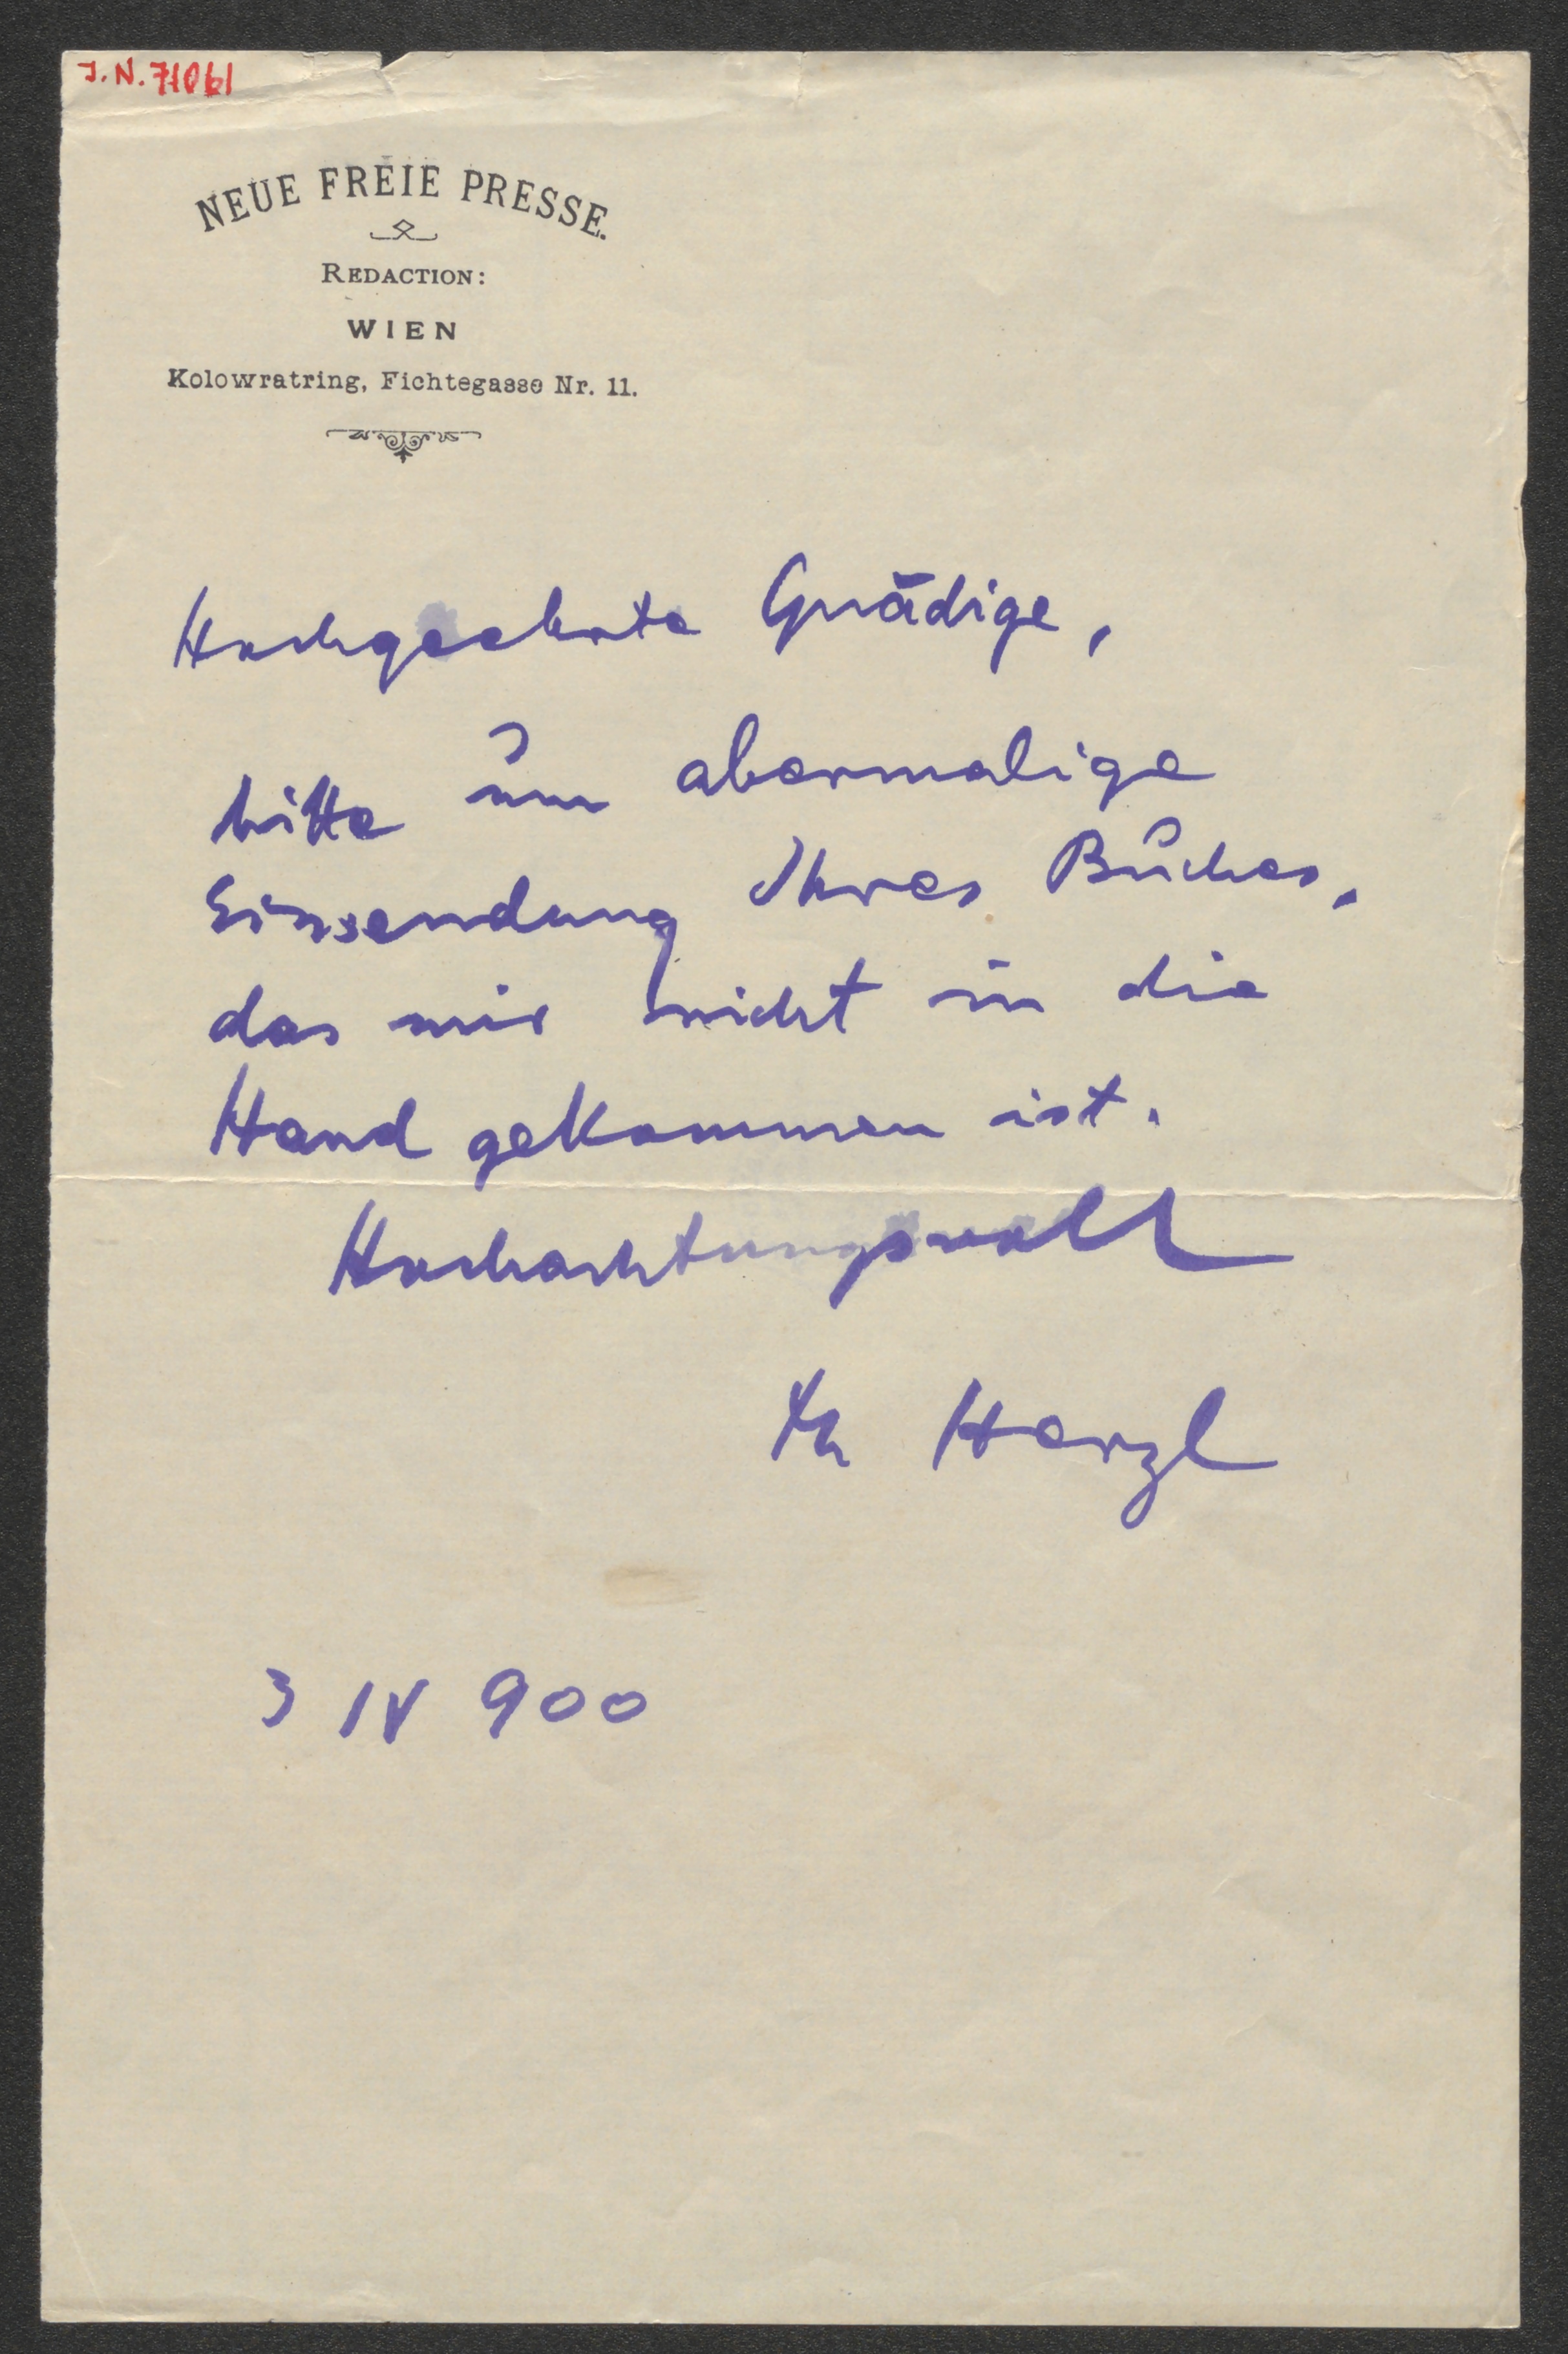 J.N. 71061
NEUE FREIE PRESSE.
REDACTION:
WIEN
Kolowratring, Fichtegasse Nr. 11.
Hochgeehrte Gnädige,
bitte um abermalige
Einsendung Ihres Buches,
das mir nicht in die
Hand gekommen ist.
Hochachtungsvoll
Th Herzl
3 IV 900